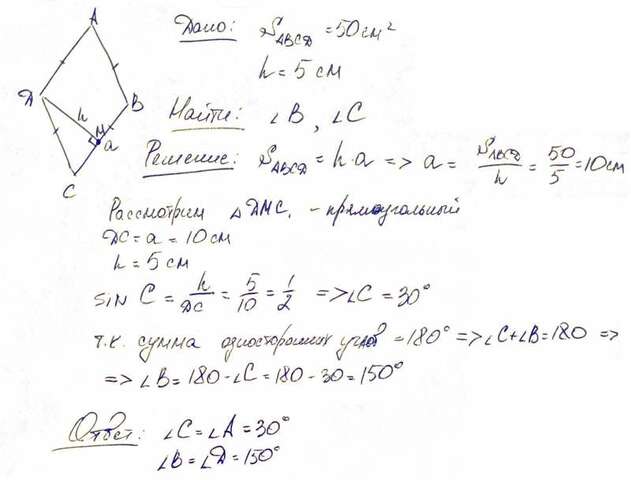 A
D
h
M
B
a
C
Дано: S_ABCD = 50 см²
h = 5 см
Найти: ∠B, ∠C
Решение: S_ABCD = h·a => a = S_ABCD/h = 50/5 = 10 см
Рассмотрим △DMC, - прямоугольный
DC = a = 10 см
h = 5 см
sin C = h/DC = 5/10 = 1/2 => ∠C = 30°
т.к. сумма односторонних углов = 180° => ∠C + ∠B = 180 =>
=> ∠B = 180 - ∠C = 180 - 30 = 150°
Ответ: ∠C = ∠A = 30°
∠B = ∠D = 150°